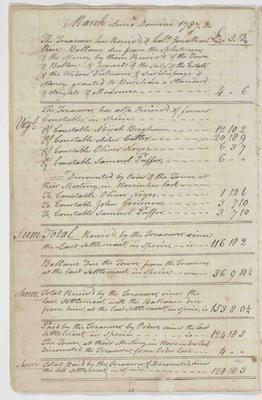 March Anno Domini 1782
The Treasurer has Receiv'd of Colo Jonathan £ S D
Ballance due from the Selectmen
of the Money by them Receiv'd of the Town
of Bolton, & Interest of the Sale of the Estate
of the Widow & Surplusage of
Money granted to Purchase a Standard
of Weights & Measures 4 " 6
The Treasurer has also Receiv'd of former
Constables in Specie
of Constable Abijah Brigham 12 10 2
of Constable Asher Cutler 20 18 9
of Constable Oliver Noyes 6 3 7
of Constable Samuel Puffer 6 " "
Discounted by Order of the Town at
their Meeting in November last
To Constable Oliver Noyes 1 12 6
To Constable John 3 7 10
To Constable Samuel Puffer 3 7 10
Sum Total Receiv'd by the Treasurer since
the Last Settlement, in Specie is 116 18 2
Ballance Due the Town from the Treasurer
at the last Settlement, in Specie was 36 9 10¼
Sum Total Receiv'd by the Treasurer since the
last Settlement, with the Ballance due
from him, at the last Settlement in Specie is 153 8 0¼
Paid by the Treasurer by Orders since the last
Settlement in Specie is 124 18 3
The Town, at their Meeting in November last
Discounted the Treasurer from Order Lost 4 " "
Sum Total Paid by the Treasurer & Discounted since
the last Settlement in Specie 128 18 3